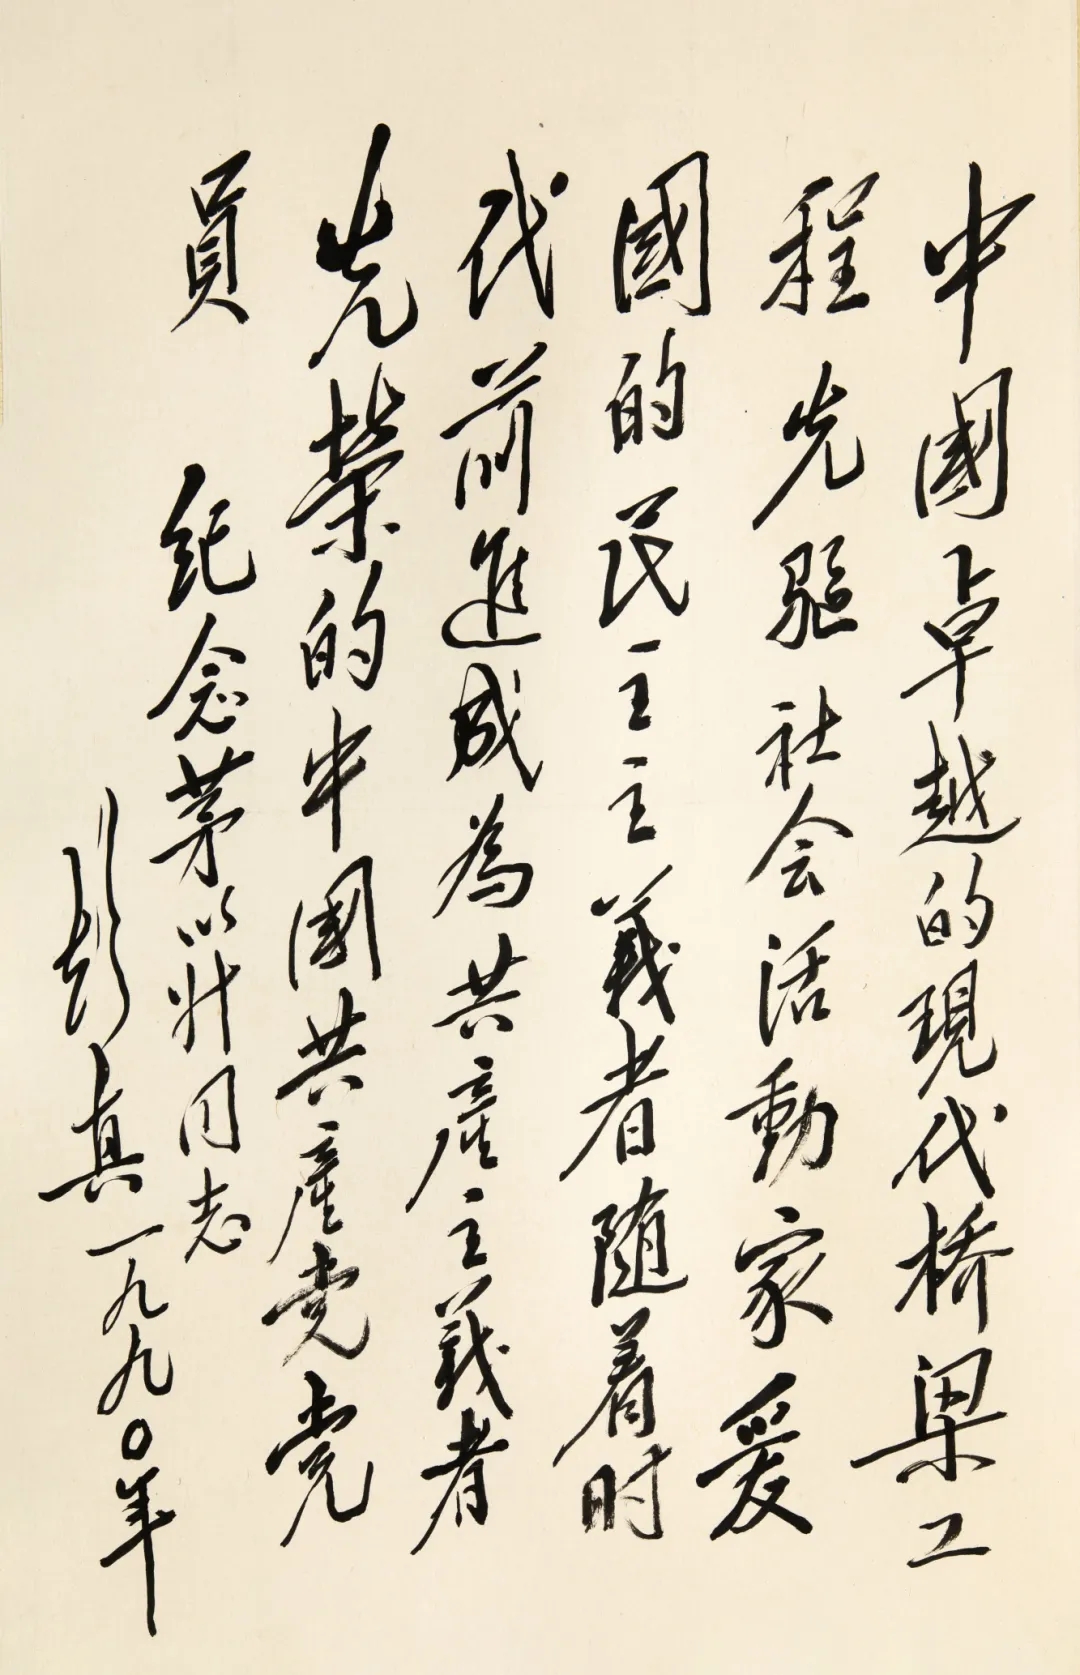 中國卓越的現代桥梁工
程先驱社会活動家爱
國的民主主義者随着时
代前進成為共産主義者
光荣的中國共産党党
員
紀念茅以升同志
彭真一九九〇年